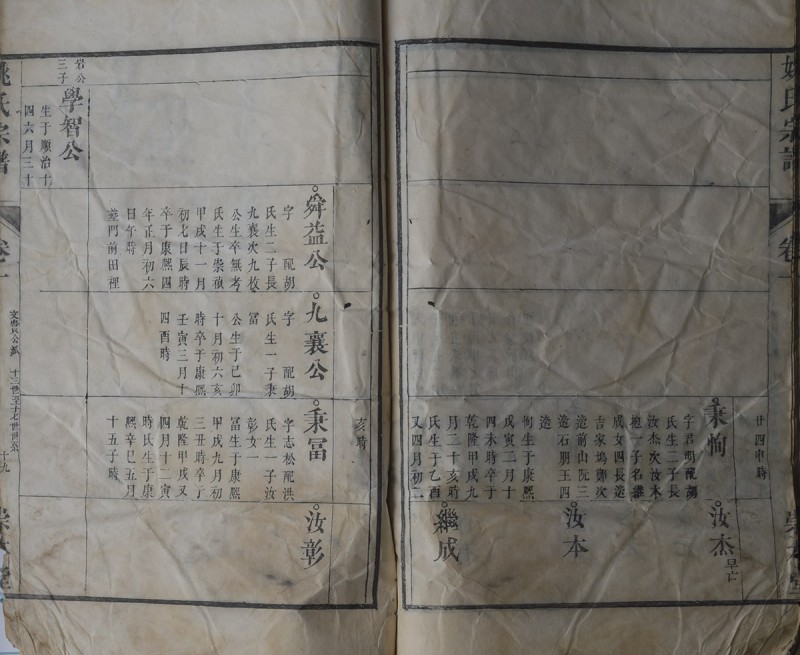 姚氏宗譜
卷一
廿四申時
秉恂
字君明配胡
氏生二子長
汝杰次汝本
抱一子名繼
成女四長適
吉家塢鄭次
造前山阮三
造石明王四
造
恂生于康熙
戊寅二月十
四未時卒于
乾隆甲戌九
月二十亥時
氏生于乙酉
又四月初二
汝杰
早亡
汝本
繼成
舜益公
字 配胡
氏生二子長
九襄次九枚
公生卒無考
氏生于崇禎
甲戌十一月
初七日辰時
卒于康熙四
年正月初六
日午時
葬門前田裡
九襄公
字 配胡
氏生一子秉
冨
公生于己卯
十月初六亥
時卒于康熙
壬寅三月十
四酉時
亥時
秉冨
字志松配洪
氏生一子汝
彰女一
冨生于康熙
甲戌九月初
三丑時卒于
乾隆甲戌又
四月十二寅
時氏生于康
熙辛巳五月
十五子時
汝彰
岩公
三子
學智公
生于順治十
四六月三十
姚氏宗譜
卷一
十三世至十七世世系
十九